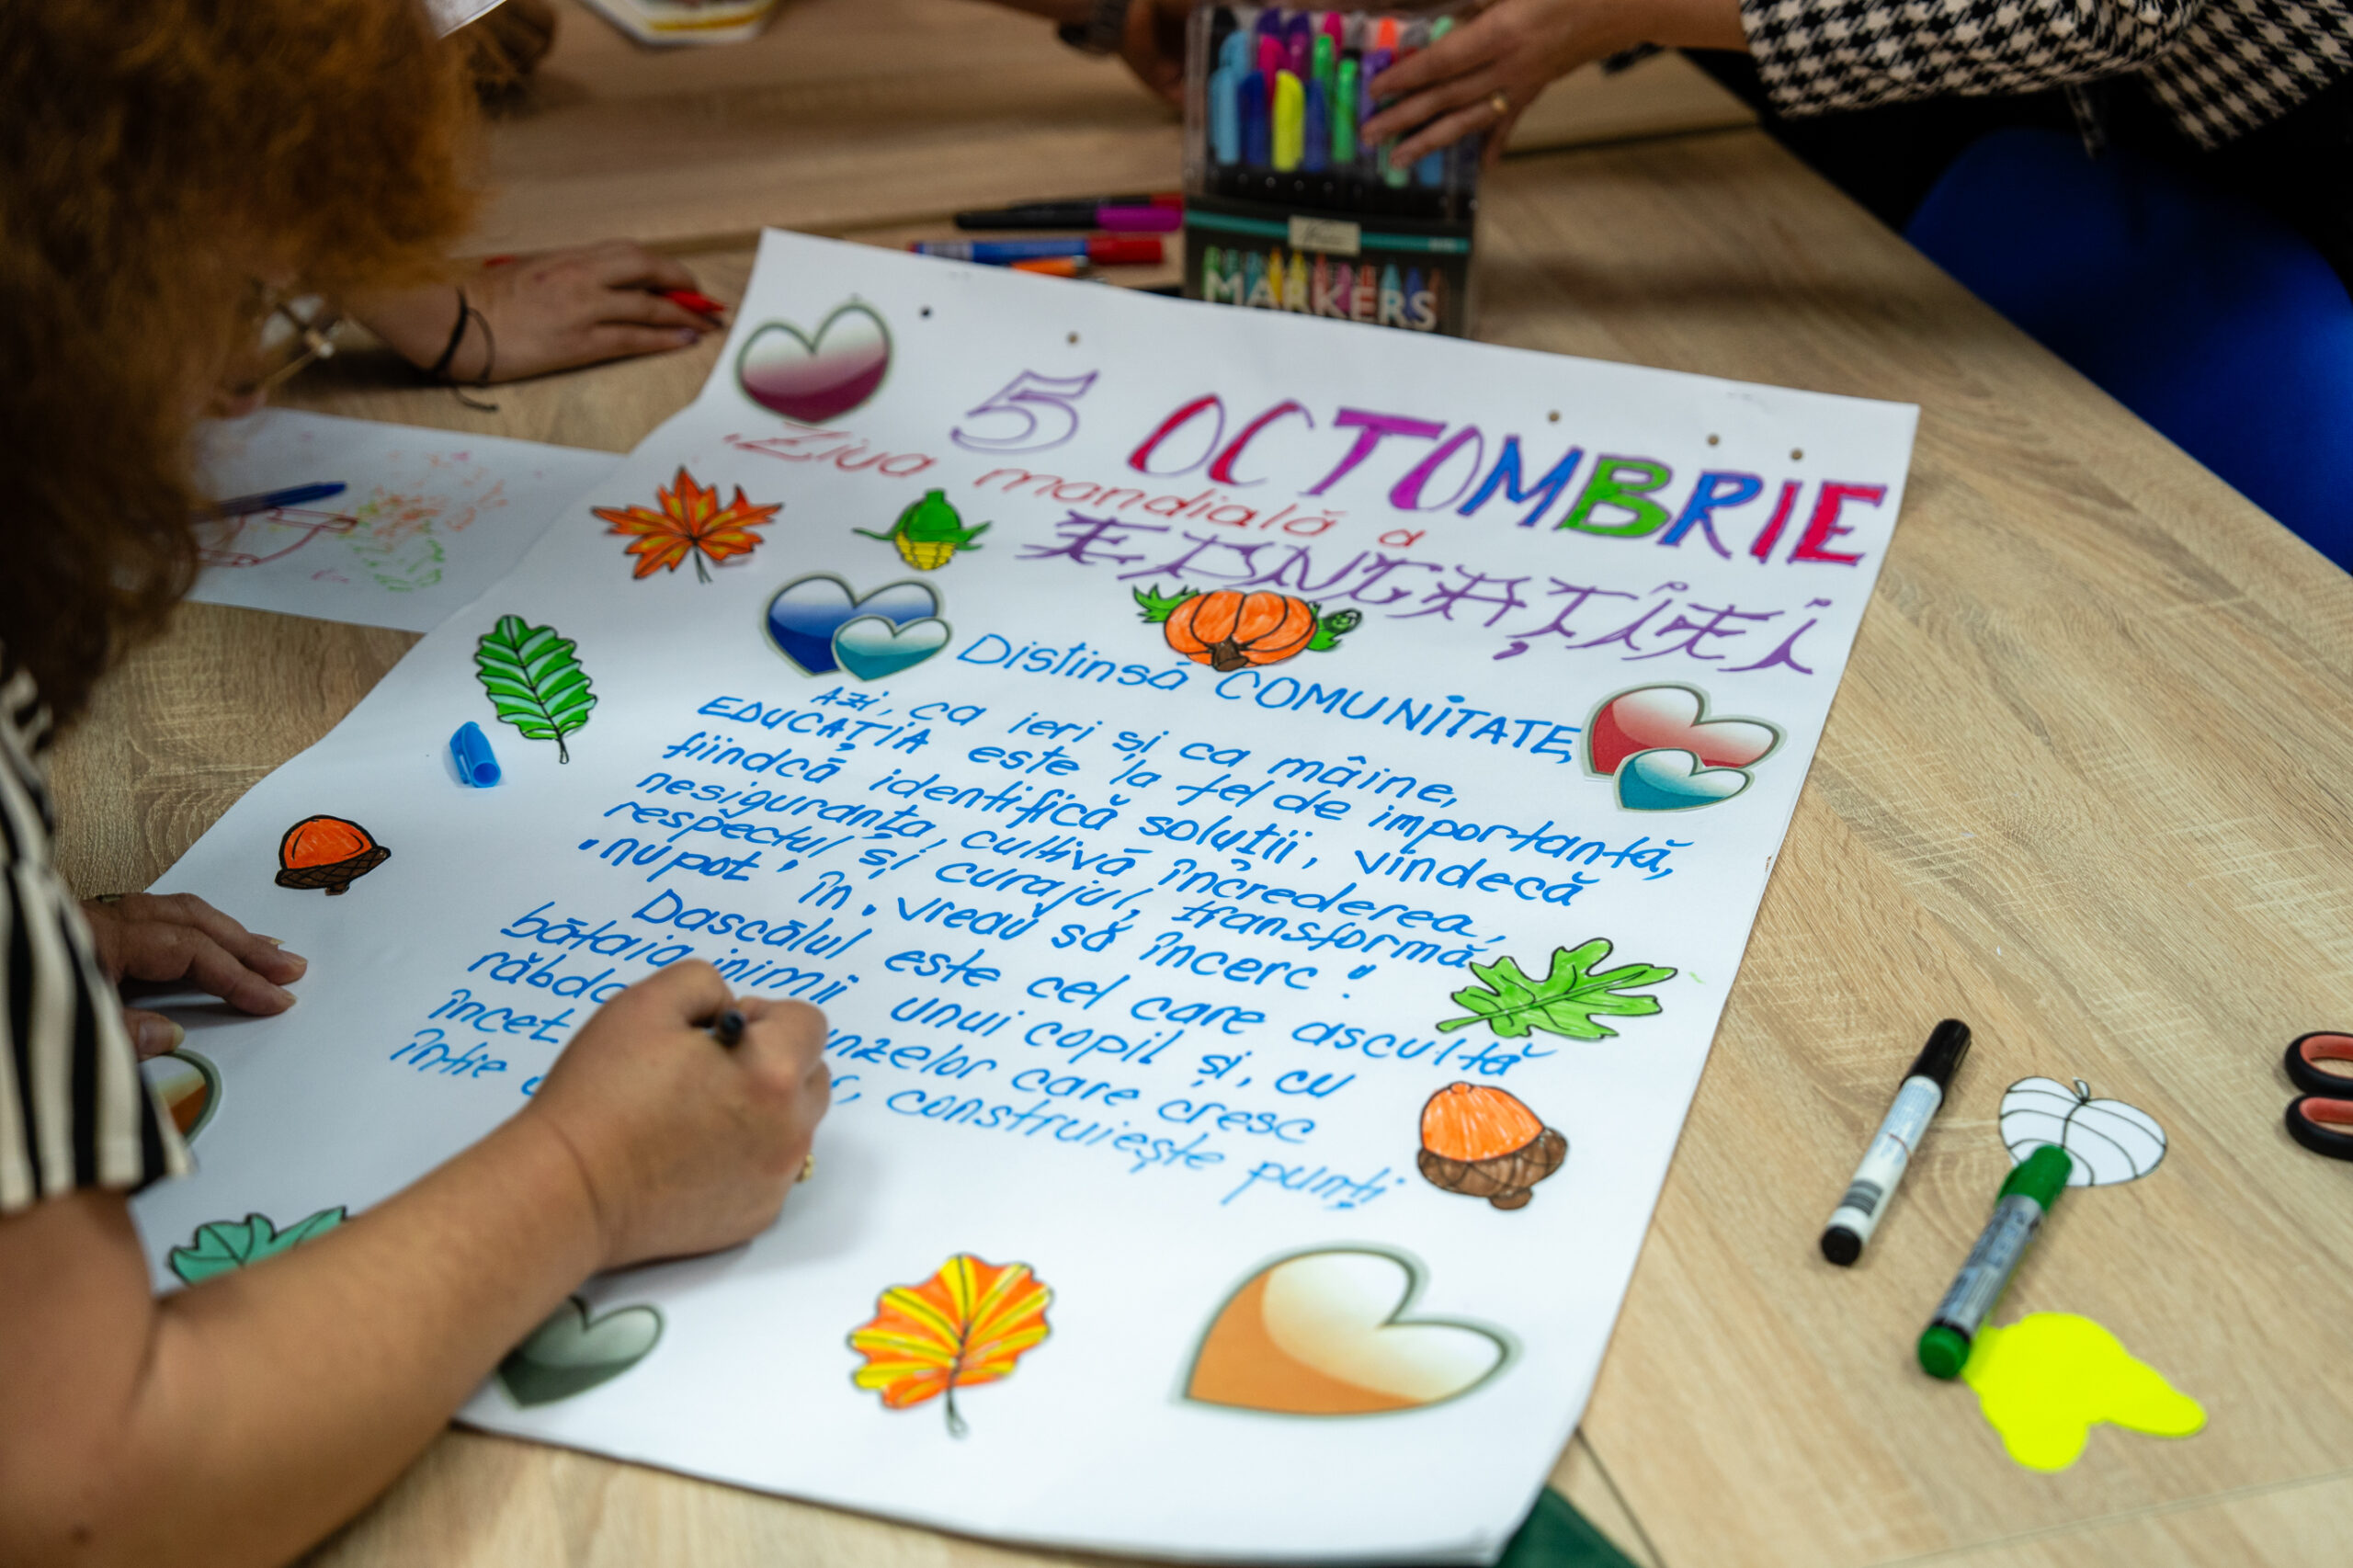 MARKERS
5 OCTOMBRIE
Ziua mondială a
EDUCAȚIEI
Distinsă COMUNITATE,
Azi, ca ieri și ca mâine,
EDUCAȚIA este la fel de importantă,
fiindcă identifică soluții, vindecă
nesiguranța, cultivă încrederea,
respectul și curajul, transformă
"nu pot" în "vreau să încerc".
Dascălul este cel care ascultă
bătaia inimii unui copil și, cu
încet care cresc
între construiește punți